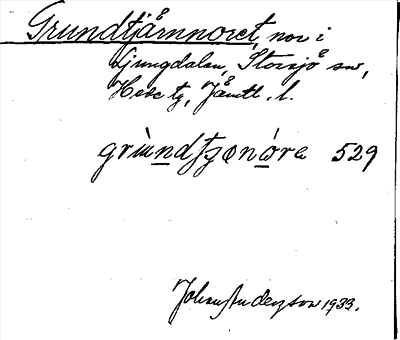 Grundtjärnnoret, nor i
Ljungdalen, Storsjö sn,
Hede tg, Jämtl. l.
grùndtʒønóra 529
Johan Anderzson 1933.